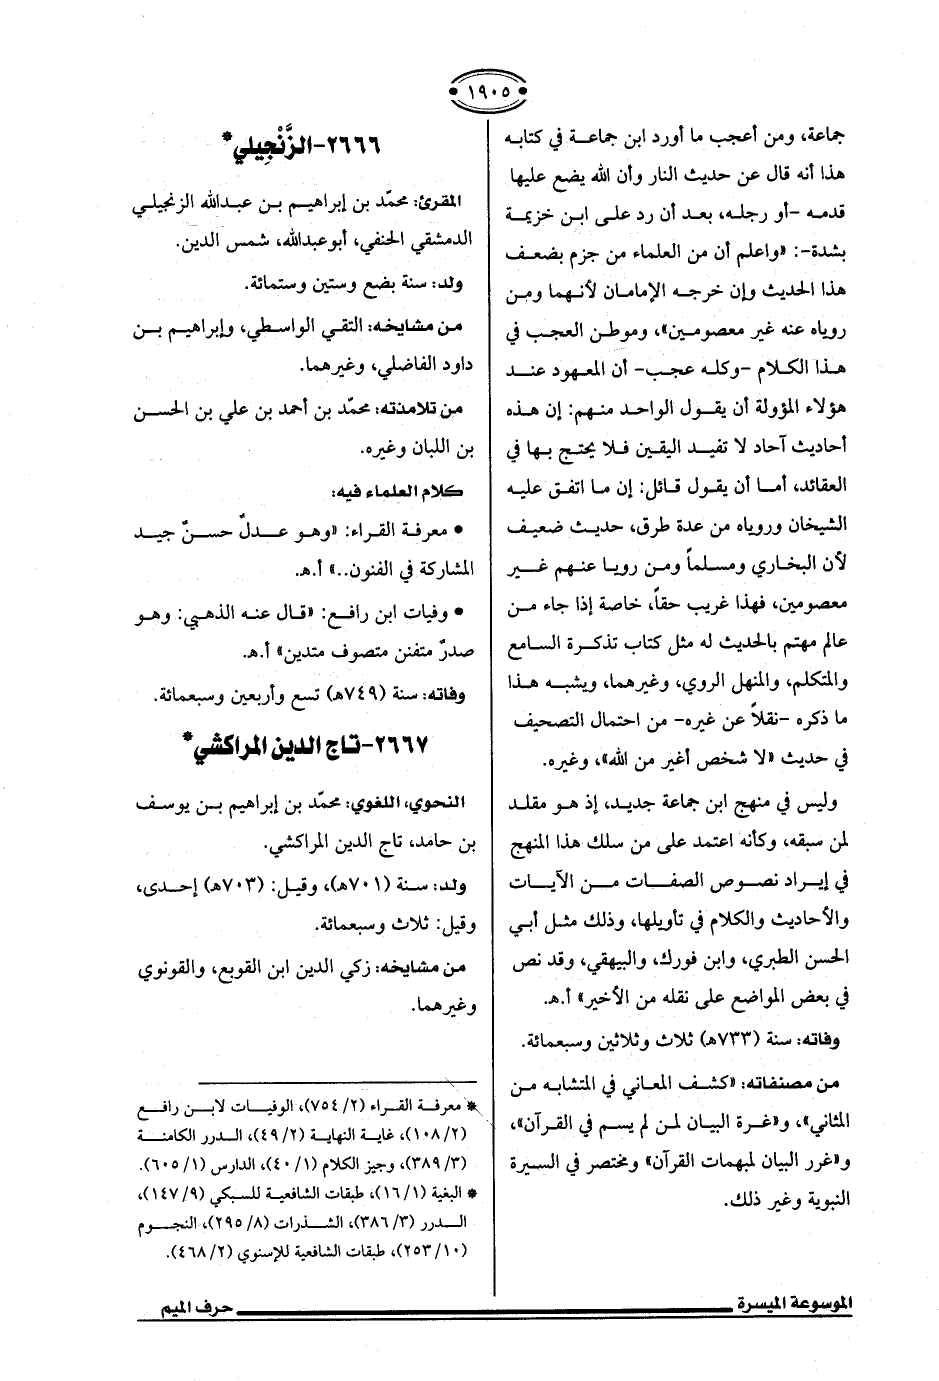 ١٩٠٥
جماعة، ومن أعجب ما أورد ابن جماعة في كتابه
هذا أنه قال عن حديث النار وأن الله يضع عليها
قدمه -أو رجله، بعد أن رد على ابن خزيمة
بشدة-: «واعلم أن من العلماء من جزم بضعف
هذا الحديث وإن خرجه الإمامان لأنهما ومن
روياه عنه غير معصومين»، وموطن العجب في
هذا الكلام -وكله عجب- أن المعهود عند
هؤلاء المؤولة أن يقول الواحد منهم: إن هذه
أحاديث آحاد لا تفيد اليقين فلا يحتج بها في
العقائد، أما أن يقول قائل: إن ما اتفق عليه
الشيخان وروياه من عدة طرق، حديث ضعيف
لأن البخاري ومسلماً ومن رويا عنهم غير
معصومين، فهذا غريب حقاً، خاصة إذا جاء من
عالم مهتم بالحديث له مثل كتاب تذكرة السامع
والمتكلم، والمنهل الروي، وغيرهما، ويشبه هذا
ما ذكره -نقلاً عن غيره- من احتمال التصحيف
في حديث «لا شخص أغير من الله»، وغيره.
وليس في منهج ابن جماعة جديد، إذ هو مقلد
لمن سبقه، وكأنه اعتمد على من سلك هذا المنهج
في إيراد نصوص الصفات من الآيات
والأحاديث والكلام في تأويلها، وذلك مثل أبي
الحسن الطبري، وابن فورك، والبيهقي، وقد نص
في بعض المواضع على نقله من الأخير» أ.هـ.
وفاته: سنة (٧٣٣هـ) ثلاث وثلاثين وسبعمائة.
من مصنفاته: «كشف المعاني في المتشابه من
المثاني»، و«غرة البيان لمن لم يسم في القرآن»،
و«غرر البيان لمبهمات القرآن» ومختصر في السيرة
النبوية وغير ذلك.
٢٦٦٦-الزَّنْجِيلي*
المقرئ: محمّد بن إبراهيم بن عبدالله الزنجيلي
الدمشقي الحنفي، أبو عبدالله، شمس الدين.
ولد: سنة بضع وستين وستمائة.
من مشايخه: التقي الواسطي، وإبراهيم بن
داود الفاضلي، وغيرهما.
من تلامذته: محمّد بن أحمد بن علي بن الحسن
بن اللبان وغيره.
كلام العلماء فيه:
• معرفة القراء: «وهو عدلٌ حسنٌ جيد
المشاركة في الفنون..» أ.هـ.
• وفيات ابن رافع: «قال عنه الذهبي: وهو
صدرٌ متفنن متصوف متدين» أ.هـ.
وفاته: سنة (٧٤٩هـ) تسع وأربعين وسبعمائة.
٢٦٦٧-تاج الدين المراكشي*
النحوي، اللغوي: محمّد بن إبراهيم بن يوسف
بن حامد، تاج الدين المراكشي.
ولد: سنة (٧٠١هـ)، وقيل: (٧٠٣هـ) إحدى،
وقيل: ثلاث وسبعمائة.
من مشايخه: زكي الدين ابن القوبع، والقونوي
وغيرهما.
* معرفة القراء (٢/ ٧٥٤)، الوفيات لابن رافع
(٢/ ١٠٨)، غاية النهاية (٢/ ٤٩)، الدرر الكامنة
(٣/ ٣٨٩)، وجيز الكلام (١/ ٤٠)، الدارس (١/ ٦٠٥).
* البغية (١/ ١٦)، طبقات الشافعية للسبكي (٩/ ١٤٧)،
الدرر (٣/ ٣٨٦)، الشذرات (٨/ ٢٩٥)، النجوم
(١٠/ ٢٥٣)، طبقات الشافعية للإسنوي (٢/ ٤٦٨).
الموسوعة الميسرة
حرف الميم